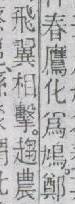 春鷹化爲鳩鄭
飛翼相擊。趨農